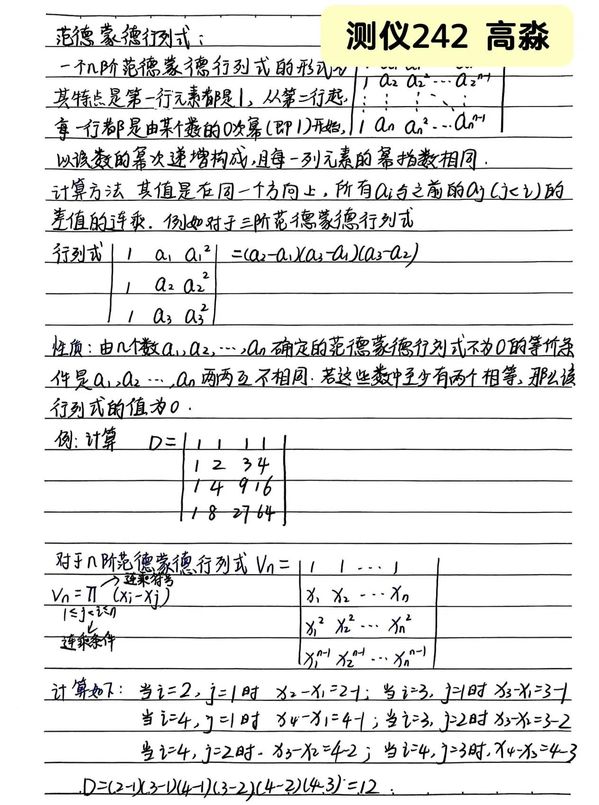 测仪242 高淼
范德蒙德行列式:
一个n阶范德蒙德行列式的形式为
1 a₂ a₂² … a₂ⁿ⁻¹
⋮ ⋮ ⋮ ⋱ ⋮
1 aₙ aₙ² … aₙⁿ⁻¹
其特点是第一行元素都是1, 从第二行起,
每一行都是由某个数的0次幂(即1)开始,
以该数的幂次递增构成,且每一列元素的幂指数相同.
计算方法 其值是在同一个方向上, 所有aᵢ与之前的aⱼ(j<i)的
差值的连乘. 例如对于三阶范德蒙德行列式
行列式 | 1 a₁ a₁² | =(a₂-a₁)(a₃-a₁)(a₃-a₂)
| 1 a₂ a₂² |
| 1 a₃ a₃² |
性质: 由n个数a₁,a₂,…,aₙ确定的范德蒙德行列式不为0的等价条
件是a₁,a₂…,aₙ两两互不相同. 若这些数中至少有两个相等, 那么该
行列式的值为0.
例: 计算 D= | 1 1 1 1 |
| 1 2 3 4 |
| 1 4 9 16 |
| 1 8 27 64 |
对于n阶范德蒙德行列式Vₙ= | 1 1 … 1 |
→连乘符号
Vₙ=π (xᵢ-xⱼ) | x₁ x₂ … xₙ |
1≤j<i≤n
| x₁² x₂² … xₙ² |
连乘条件
| x₁ⁿ⁻¹ x₂ⁿ⁻¹ … xₙⁿ⁻¹ |
计算如下: 当i=2, j=1时 x₂-x₁=2-1; 当i=3, j=1时 x₃-x₁=3-1
当i=4, j=1时 x₄-x₁=4-1; 当i=3, j=2时 x₃-x₂=3-2
当i=4, j=2时. x₃-x₂=4-2; 当i=4, j=3时, x₄-x₃=4-3
D=(2-1)(3-1)(4-1)(3-2)(4-2)(4-3)=12.